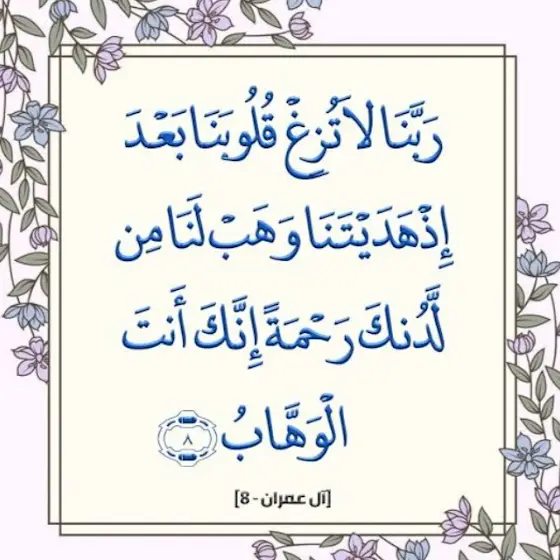 رَبَّنَا لَا تُزِغْ قُلُوبَنَا بَعْدَ
إِذْ هَدَيْتَنَا وَهَبْ لَنَا مِن
لَّدُنكَ رَحْمَةً إِنَّكَ أَنتَ
الْوَهَّابُ ٨
[آل عمران - 8]